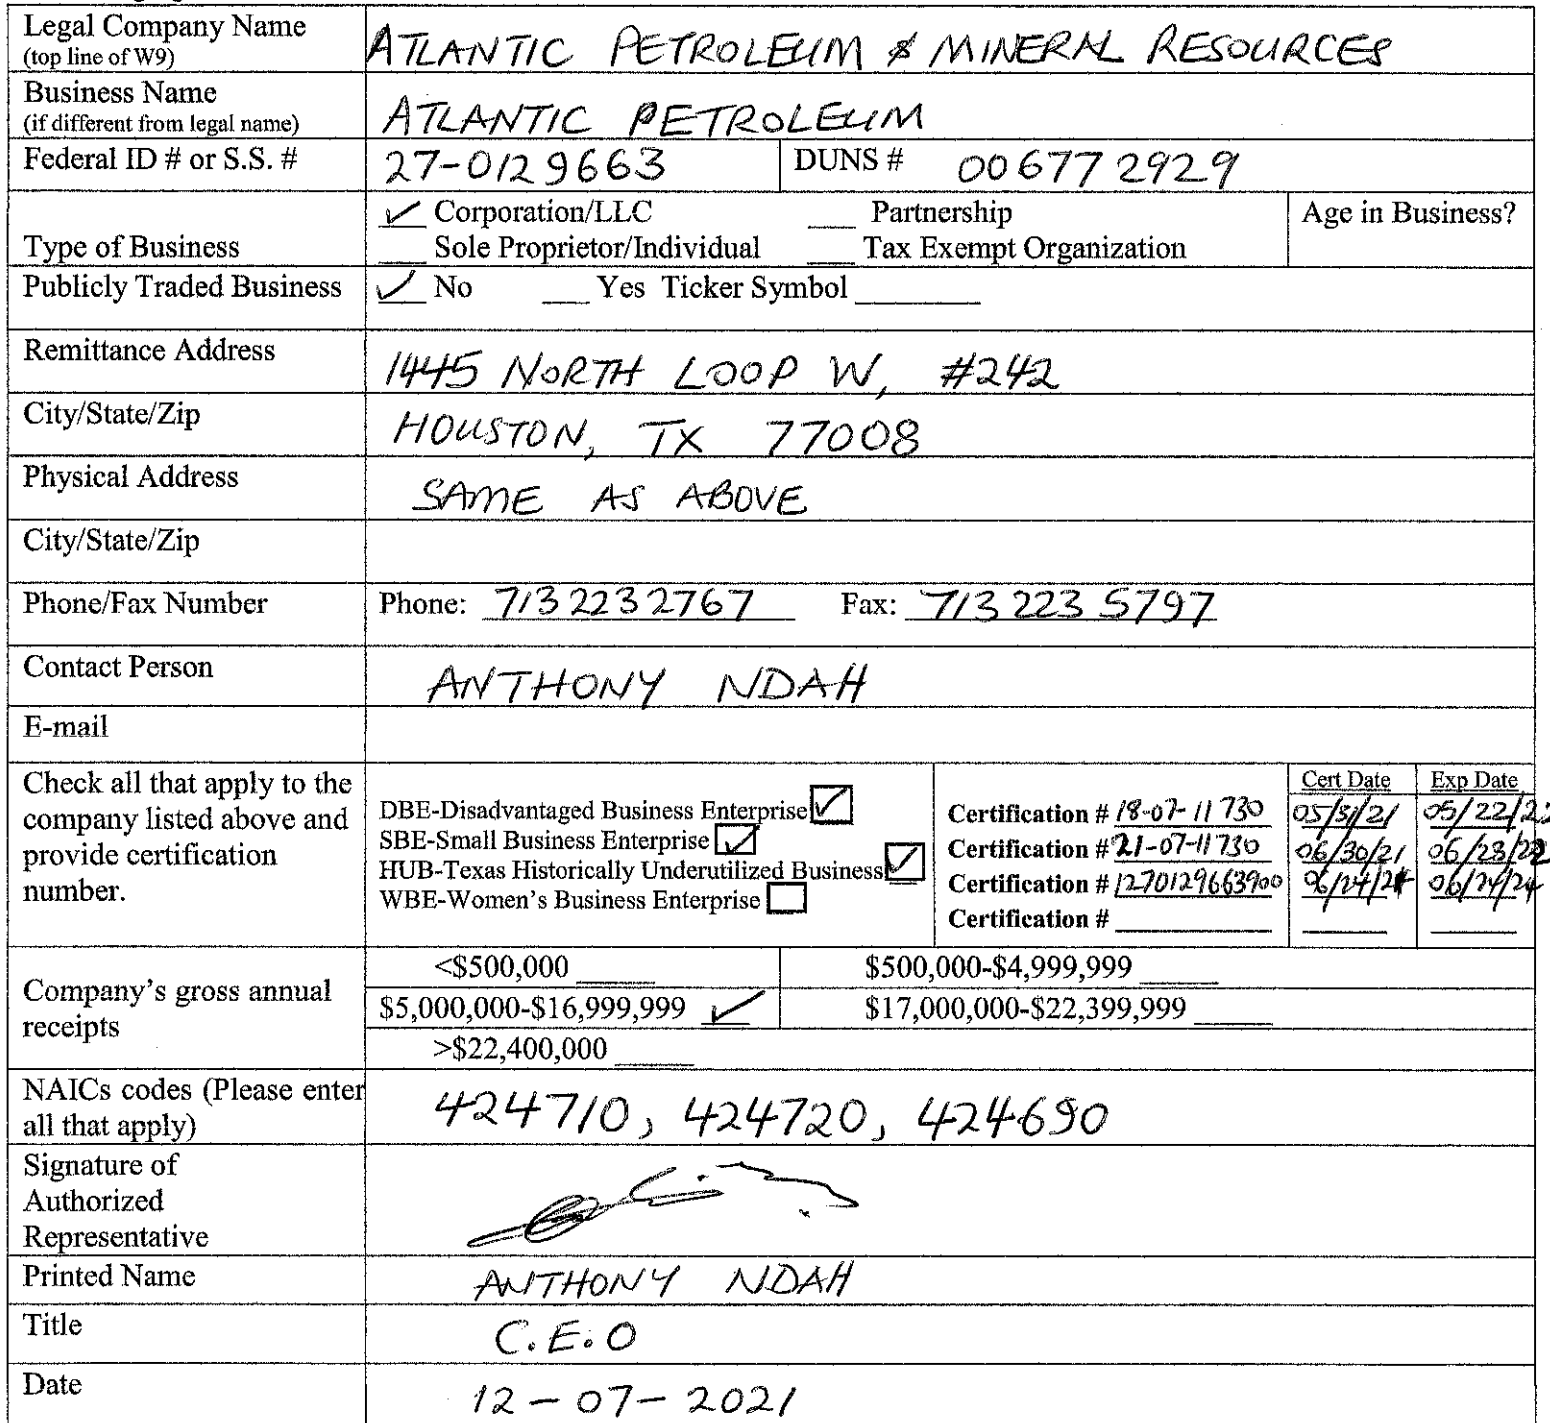 Legal Company Name
(top line of W9)
ATLANTIC PETROLEUM & MINERAL RESOURCES
Business Name
(if different from legal name)
ATLANTIC PETROLEUM
Federal ID # or S.S. # 27-0129663 DUNS # 006772929
Type of Business
✓ Corporation/LLC ___ Partnership
___ Sole Proprietor/Individual ___ Tax Exempt Organization
Age in Business?
Publicly Traded Business ✓ No ___ Yes Ticker Symbol ___
Remittance Address 1445 NORTH LOOP W, #242
City/State/Zip HOUSTON, TX 77008
Physical Address SAME AS ABOVE
City/State/Zip
Phone/Fax Number Phone: 713 223 2767 Fax: 713 223 5797
Contact Person ANTHONY NDAH
E-mail
Check all that apply to the
company listed above and
provide certification
number.
Cert Date Exp Date
DBE-Disadvantaged Business Enterprise ✓ Certification # 18-07-11730 05/31/21 05/22/22
SBE-Small Business Enterprise ✓ Certification # 21-07-11730 06/30/21 06/23/22
HUB-Texas Historically Underutilized Business ✓ Certification # 1270129663900 06/24/24
WBE-Women's Business Enterprise Certification # ___
Company's gross annual
receipts
<$500,000 ___ $500,000-$4,999,999 ___
$5,000,000-$16,999,999 ✓ $17,000,000-$22,399,999 ___
>$22,400,000 ___
NAICs codes (Please enter
all that apply)
424710, 424720, 424690
Signature of
Authorized
Representative
Printed Name ANTHONY NDAH
Title C.E.O
Date 12-07-2021